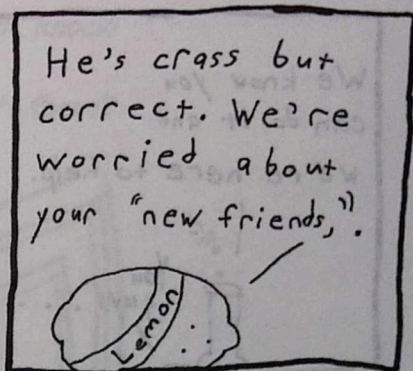 He's crass but
correct. We're
worried about
your "new friends,".
Lemon